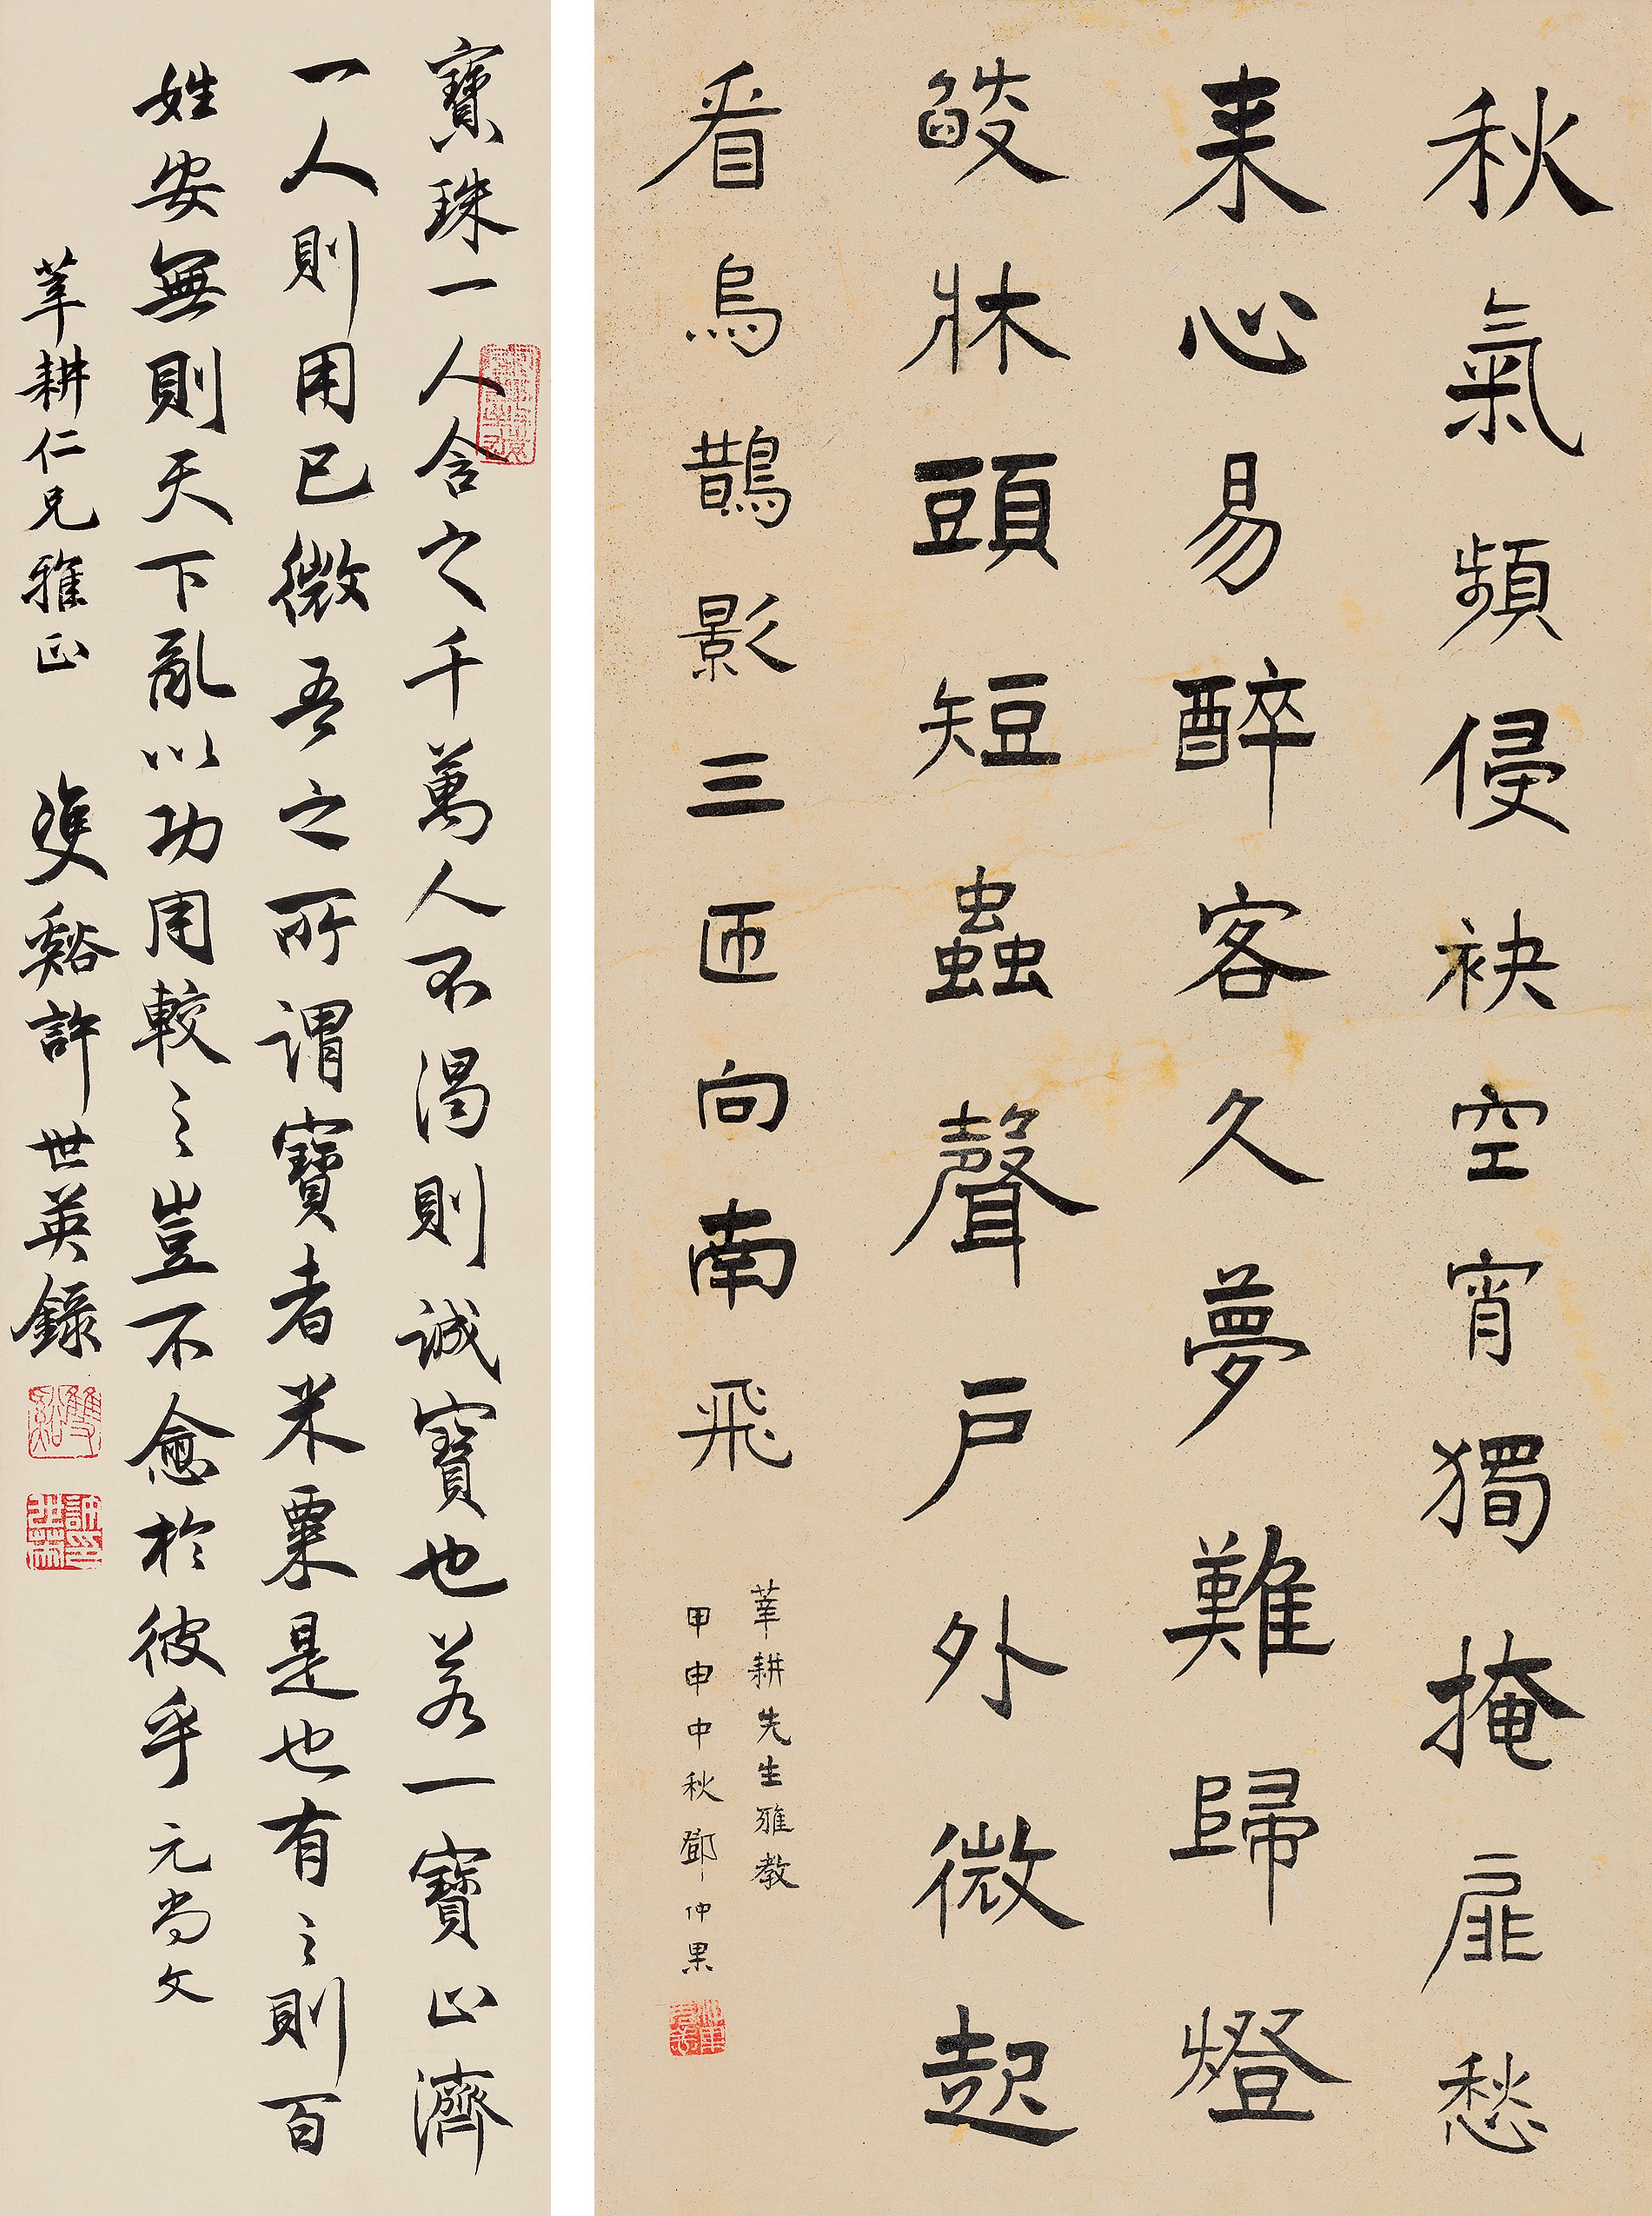 秋氣頻侵袂空宵獨掩扉愁
来心易醉客久夢難歸燈
燄牀頭短蟲聲戶外微起
看烏鵲影三匝向南飛
莘耕先生雅教
甲申中秋鄧仲果
寶珠一人含之千萬人不渴則誠寶也若一寶止濟
一人則用已微吾之所謂寶者米粟是也有之則百
姓安無則天下亂以功用較之豈不愈於彼乎元尚文
莘耕仁兄雅正 雙谿許世英錄
雙谿
許世英印